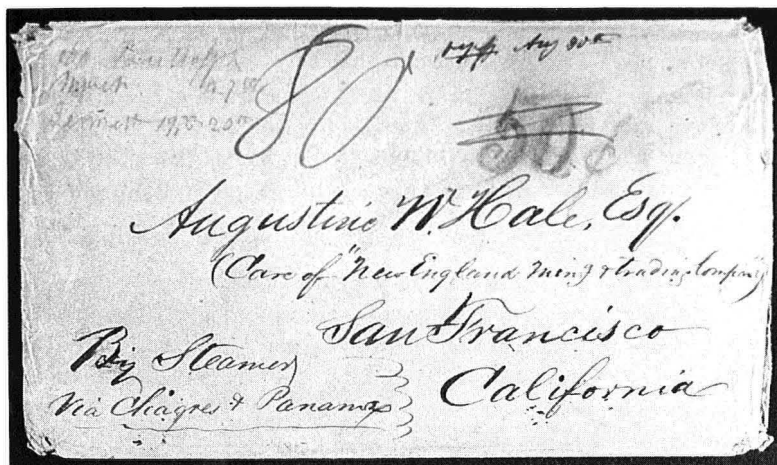 80
Aug 30th
50c
Augustine W. Hale, Esq.
(Care of "New England Mining & trading Company"
San Francisco
California
By Steamer
Via Chagres & Panama